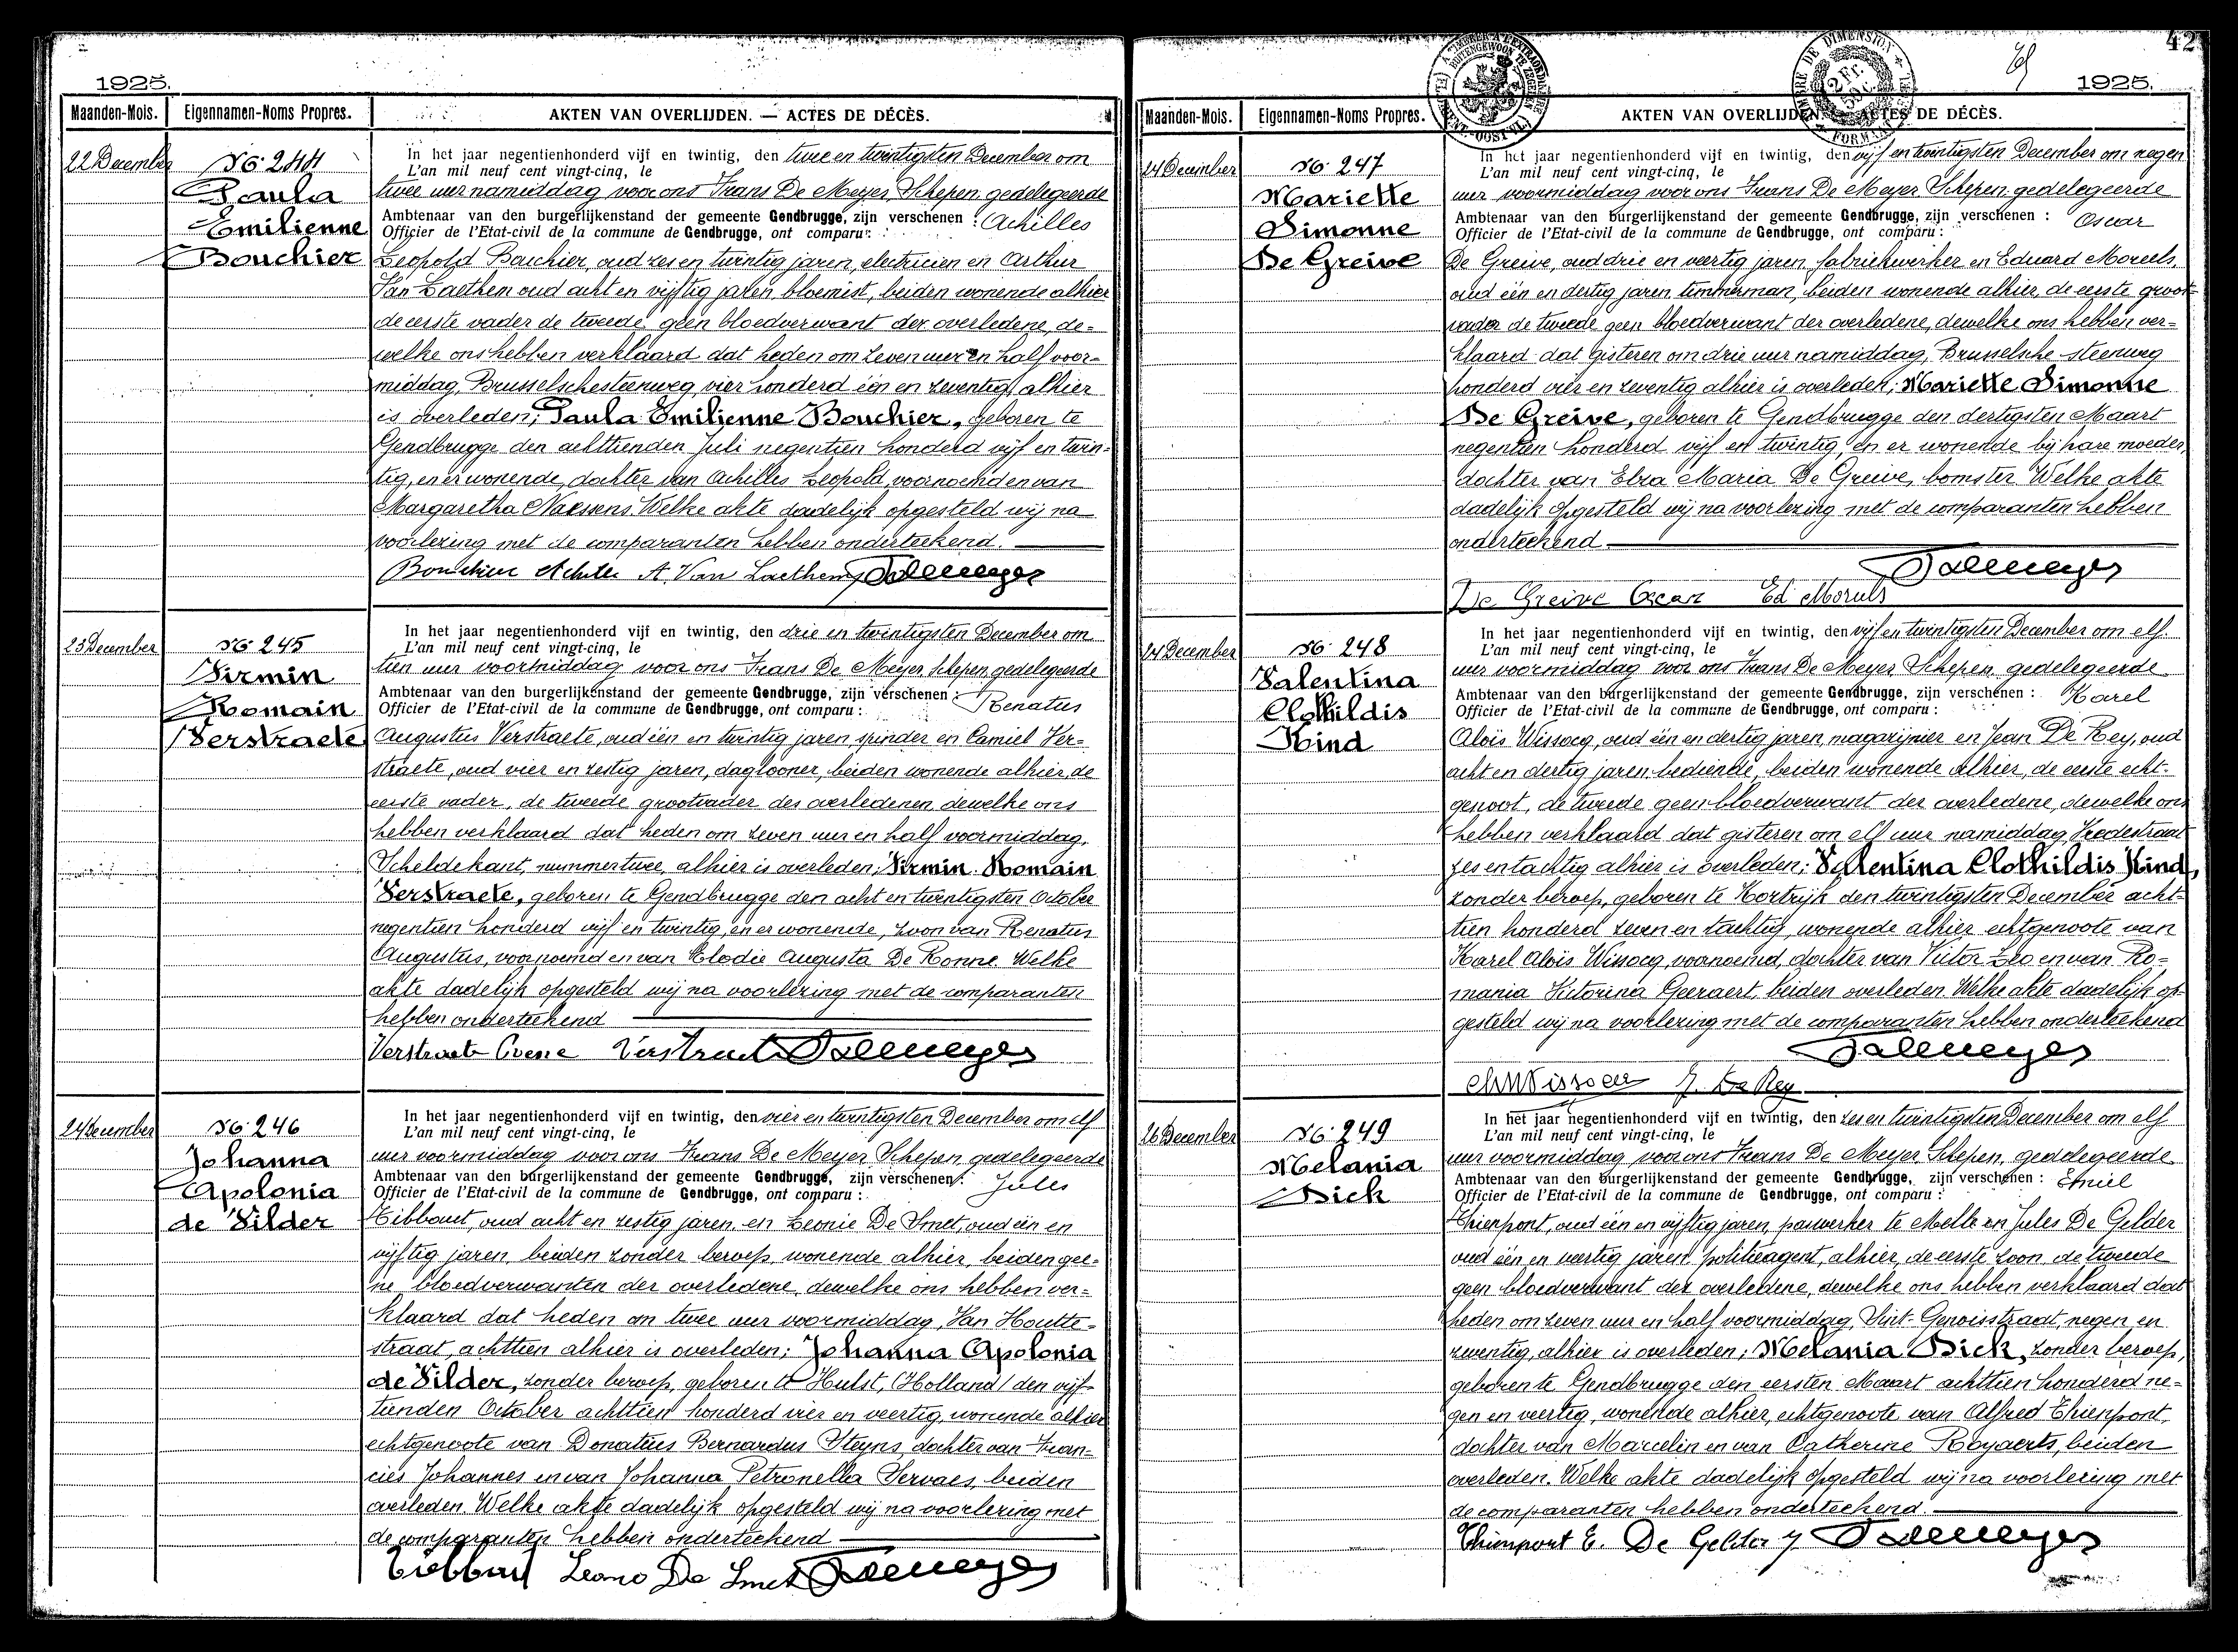 1925.
Maanden-Mois. Eigennamen-Noms Propres. AKTEN VAN OVERLIJDEN. — ACTES DE DÉCÈS.
22 December
No. 244
Paula
Emilienne
Bouchier
In het jaar negentienhonderd vijf en twintig, den twee en twintigsten December om
L'an mil neuf cent vingt-cinq, le
twee uur namiddag voor ons Frans De Meyer, Schepen, gedelegeerde
Ambtenaar van den burgerlijkenstand der gemeente Gendbrugge, zijn verschenen : Achilles
Officier de l'Etat-civil de la commune de Gendbrugge, ont comparu :
Leopold Bouchier, oud zes en twintig jaren, electricien en Arthur
Van Laethem oud acht en vijftig jaren, bloemist, beiden wonende alhier
de eerste vader de tweede geen bloedverwant der overledene, de-
welke ons hebben verklaard dat heden om zeven uur en half voor-
middag, Brusselschesteenweg, vier honderd één en zeventig, alhier
is overleden; Paula Emilienne Bouchier, geboren te
Gendbrugge den achttienden Juli negentien honderd vijf en twin-
tig, en er wonende, dochter van Achilles Leopold, voornoemd en van
Margaretha Naessens. Welke akte dadelijk opgesteld wij na
voorlezing met de comparanten hebben onderteekend.
Bouchier Achiles A. Van Laethem F De Meyer
23 December
No. 245
Firmin
Romain
Verstraete
In het jaar negentienhonderd vijf en twintig, den drie en twintigsten December om
L'an mil neuf cent vingt-cinq, le
tien uur voormiddag voor ons Frans De Meyer Schepen, gedelegeerde
Ambtenaar van den burgerlijkenstand der gemeente Gendbrugge, zijn verschenen : Renatus
Officier de l'Etat-civil de la commune de Gendbrugge, ont comparu :
Augustus Verstraete, oud één en twintig jaren spinder en Camiel Ver-
straete, oud vier en zestig jaren, daglooner, beiden wonende alhier, de
eerste vader, de tweede grootvader des overledenen, dewelke ons
hebben verklaard dat heden om zeven uur en half voormiddag,
Scheldekant, nummer twee, alhier is overleden; Firmin Romain
Verstraete, geboren te Gendbrugge den acht en twintigsten October
negentien honderd vijf en twintig, en er wonende, zoon van Renatus
Augustus, voornoemd en van Elodie Augusta De Ronne. Welke
akte dadelijk opgesteld wij na voorlezing met de comparanten
hebben onderteekend
Verstraete Verstraete F De Meyer
24 December
No. 246
Johanna
Apolonia
de Vilder
In het jaar negentienhonderd vijf en twintig, den vier en twintigsten December om elf
L'an mil neuf cent vingt-cinq, le
uur voormiddag voor ons Frans De Meyer Schepen, gedelegeerde
Ambtenaar van den burgerlijkenstand der gemeente Gendbrugge, zijn verschenen : Jules
Officier de l'Etat-civil de la commune de Gendbrugge, ont comparu :
Tibbaut, oud acht en zestig jaren, en Leonie De Smet, oud één en
vijftig jaren, beiden zonder beroep, wonende alhier, beiden gee-
ne bloedverwanten der overledene, dewelke ons hebben ver-
klaard dat heden om twee uur voormiddag, Van Houtte-
straat, achttien alhier is overleden; Johanna Apolonia
de Vilder, zonder beroep, geboren te Hulst, (Holland) den vijf-
tienden October achttien honderd vier en veertig, wonende alhier
echtgenoote van Donatius Bernardus Steyns, dochter van Fran-
cies Johannes en van Johanna Petronella Servaes, beiden
overleden. Welke akte dadelijk opgesteld wij na voorlezing met
de comparanten hebben onderteekend
Tiebbaut Leonie De Smet F De Meyer
42
1925.
Maanden-Mois. Eigennamen-Noms Propres. AKTEN VAN OVERLIJDEN. — ACTES DE DÉCÈS.
24 December
No. 247
Mariette
Simonne
De Greive
In het jaar negentienhonderd vijf en twintig, den vijf en twintigsten December om negen
L'an mil neuf cent vingt-cinq, le
uur voormiddag voor ons Frans De Meyer Schepen, gedelegeerde
Ambtenaar van den burgerlijkenstand der gemeente Gendbrugge, zijn verschenen : Oscar
Officier de l'Etat-civil de la commune de Gendbrugge, ont comparu :
De Greive, oud drie en veertig jaren, fabriekwerker en Eduard Moreels,
oud één en dertig jaren, timmerman, beiden wonende alhier, de eerste groot-
vader de tweede geen bloedverwant der overledene, dewelke ons hebben ver-
klaard dat gisteren om drie uur namiddag, Brusselsche steenweg
honderd vier en zeventig alhier is overleden; Mariette Simonne
De Greive, geboren te Gendbrugge den dertigsten Maart
negentien honderd vijf en twintig, en er wonende bij hare moeder,
dochter van Elza Maria De Greive, bomster. Welke akte
dadelijk opgesteld wij na voorlezing met de comparanten hebben
onderteekend
F De Meyer
De Greive Oscar Ed Moreels
24 December
No. 248
Valentina
Clothildis
Kind
In het jaar negentienhonderd vijf en twintig, den vijf en twintigsten December om elf
L'an mil neuf cent vingt-cinq, le
uur voormiddag voor ons Frans De Meyer, Schepen, gedelegeerde
Ambtenaar van den burgerlijkenstand der gemeente Gendbrugge, zijn verschenen : Karel
Officier de l'Etat-civil de la commune de Gendbrugge, ont comparu :
Aloïs Wissocq, oud één en dertig jaren, magazijnier en Jean De Rey, oud
acht en dertig jaren, bediende, beiden wonende alhier, de eerste echt-
genoot, de tweede geen bloedverwant der overledene, dewelke ons
hebben verklaard dat gisteren om elf uur namiddag, Vredestraat
zes en tachtig alhier is overleden; Valentina Clothildis Kind,
zonder beroep, geboren te Kortrijk den twintigsten December acht-
tien honderd zeven en tachtig, wonende alhier echtgenoote van
Karel Aloïs Wissocq, voornoemd, dochter van Victor Leo en van Ro-
mania Victorina Geeraert, beiden overleden. Welke akte dadelijk op-
gesteld wij na voorlezing met de comparanten hebben onderteekend
F De Meyer
Ch Wissocq J. De Rey
26 December
No. 249
Melania
Dick
In het jaar negentienhonderd vijf en twintig, den zes en twintigsten December om elf
L'an mil neuf cent vingt-cinq, le
uur voormiddag voor ons Frans De Meyer, Schepen, gedelegeerde
Ambtenaar van den burgerlijkenstand der gemeente Gendbrugge, zijn verschenen : Emiel
Officier de l'Etat-civil de la commune de Gendbrugge, ont comparu :
Thienpont, oud één en vijftig jaren, paswerker te Melle en Jules De Gelder
oud één en veertig jaren, politieagent, alhier, de eerste zoon, de tweede
geen bloedverwant der overledene, dewelke ons hebben verklaard dat
heden om zeven uur en half voormiddag, Sint-Genoisstraat, negen en
zeventig, alhier is overleden; Melania Dick, zonder beroep,
geboren te Gendbrugge den eersten Maart achttien honderd ne-
gen en veertig, wonende alhier, echtgenoote van Alfred Thienpont,
dochter van Marcelin en van Catherine Rooyaerts, beiden
overleden. Welke akte dadelijk opgesteld wij na voorlezing met
de comparanten hebben onderteekend
Thienpont E. De Gelder J F De Meyer